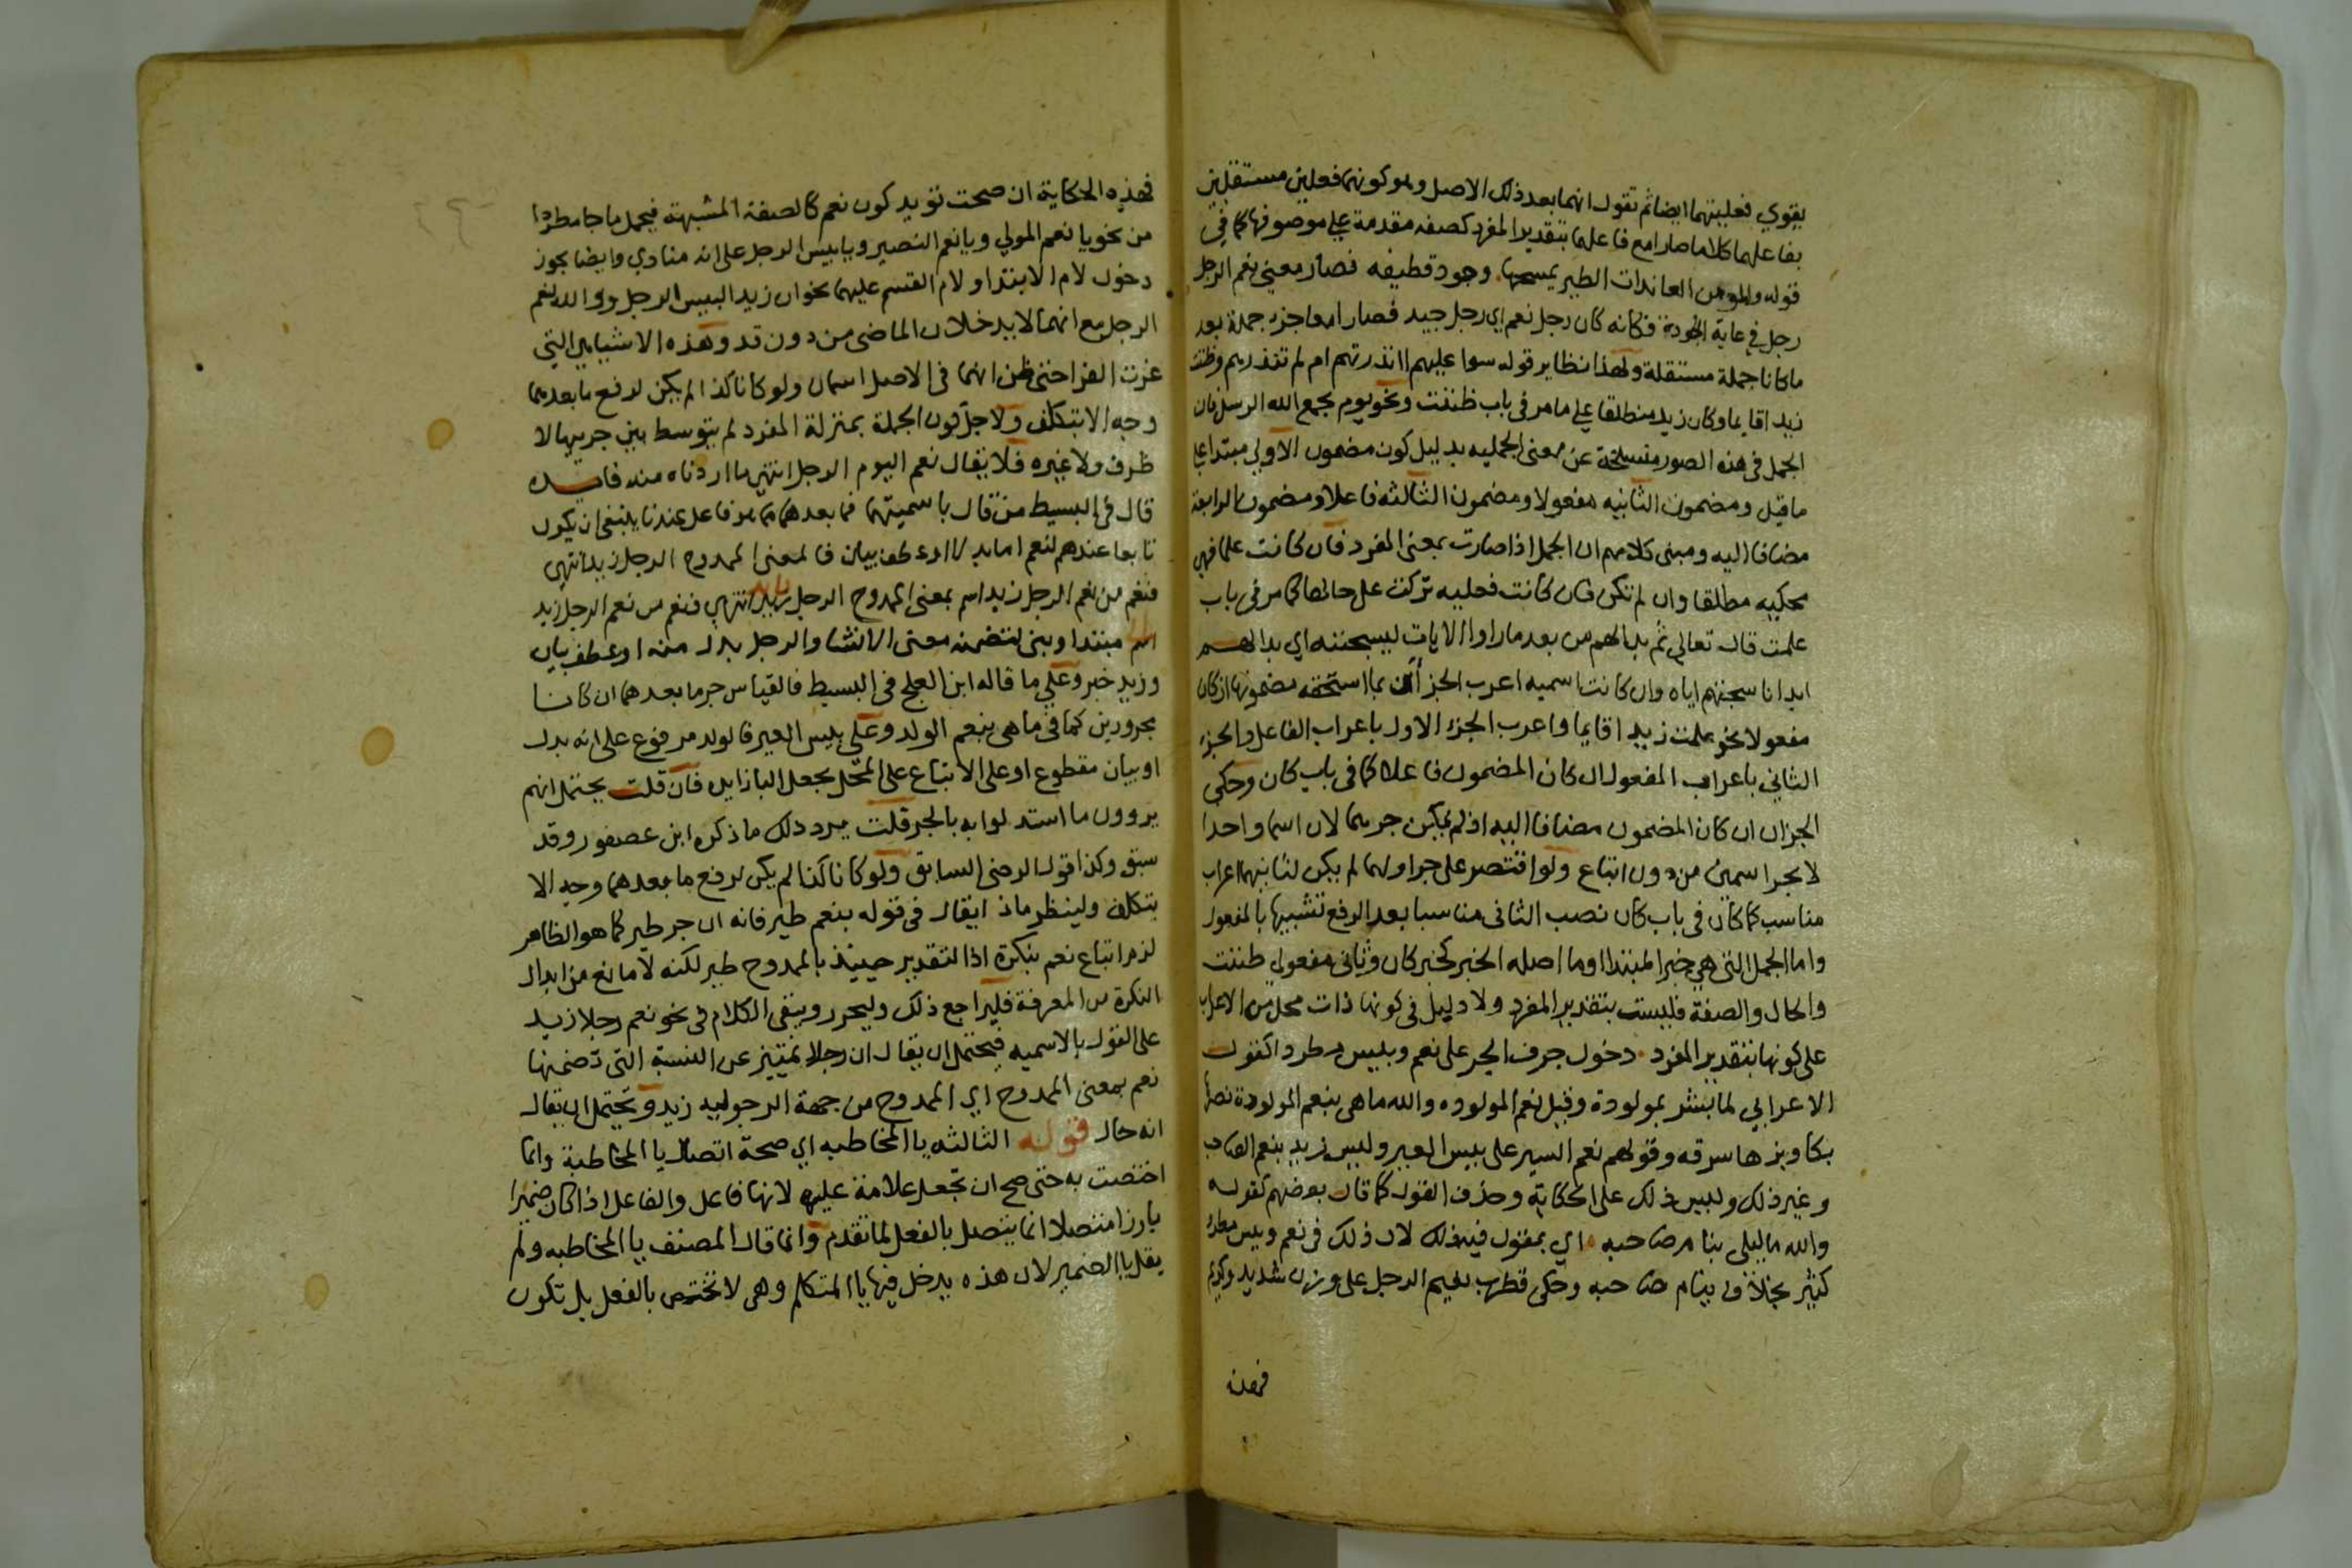 يقوي فعليتهما ايضا ثم تقول انهما بعد ذلك الاصل وهو كونهما فعلين مستقلين
بفاعلهما كلاما صارا مع فاعلهما بتقدير المفرد كصفه مقدمة علي موصوفها كما في
قوله والمومن العائذات الطير يمسحها وجرد قطيفه فصار معني نعم الرجل
رجل في غاية الجودة فكانه كان رجل نعم اي رجل جيد فصارا معا جزء جملة بعد
ما كانا جملة مستقلة ولهذا نظاير قوله سوا عليهم اانذرتهم ام لم تنذرهم وظننت
زيدا قايما وكان زيد منطلقا علي ما مر في باب ظننت ونحو يوم يجمع الله الرسل فان
الجمل في هذه الصور منسلخة عن معني الجمليه بدليل كون مضمون الاولي مبتدا علي
ما قيل ومضمون الثانيه مفعولا ومضمون الثالثه فاعلا ومضمون الرابعة
مضافا اليه ومبني كلامهم ان الجمل اذا صارت بمعني المفرد فان كانت علما فهي
محكيه مطلقا وان لم تكن فان كانت فعليه تركت علي حالها كما مر في باب
علمت قال تعالي ثم بدا لهم من بعد ما راوا الايات ليسجننه اي بدا لهم
ابدانا سجنهم اياه وان كانت اسميه اعرب الجزآن بما استحقه مضمونها ان كان
مفعولا نحو علمت زيدا قايما واعرب الجزء الاول باعراب الفاعل والجزء
الثاني باعراب المفعول ان كان المضمون فاعلا كما في باب كان وحكي
الجزان ان كان المضمون مضافا اليه اذ لم يمكن جرهما لان اسما واحدا
لا يجر اسمين من دون اتباع ولو اقتصر علي جر اولهما لم يكن لثانيهما اعراب
مناسب كما كان في باب كان نصب الثاني مناسبا بعد الرفع تشبيها بالمفعول
واما الجمل التي هي خبر المبتدا او ما اصله الخبر كخبر كان وثاني مفعولي ظننت
والحال والصفة فليست بتقدير المفرد ولا دليل في كونها ذات محل من الاعراب
علي كونها بتقدير المفرد دخول حرف الجر علي نعم وبيس مطرد اكقول
الاعرابي لما بشر بمولودة وقيل نعم المولوده والله ما هي بنعم المولودة نصرها
بكا وبرها سرقه وقولهم نعم السير علي بيس العير وليس زيد بنعم الصاحب
وغير ذلك وليس ذلك علي الحكاية وحذف القول كما قال بعضهم كقوله
والله ما ليلي بنام صاحبه اي بمقول فيه ذلك لان ذلك في نعم وبيس مطرد
كثير بخلاف بنام صاحبه وحكي قطرب نعيم الرجل علي وزن شديد وكريم
فهذه
فهذه الحكاية ان صحت تويد كون نعم كالصفة المشبهة فيحمل ما جا مطردا
من نحو يا نعم المولي ويا نعم النصير ويا بيس الرجل علي انه منادي وايضا يجوز
دخول لام الابتدا ولام القسم عليهما نحو ان زيدا لبيس الرجل ووالله لنعم
الرجل مع انهما لا يدخلان الماضي من دون قد وهذه الاشيا هي التي
غرت الفرا حتي ظن انهما في الاصل اسمان ولو كانا كذا لم يكن لرفع ما بعدهما
وجه الا بتكلف ولاجل كون الجملة بمنزلة المفرد لم يتوسط بين جزيها لا
ظرف ولا غيره فلا يقال نعم اليوم الرجل انتهي ما اردناه منه فايده
قال في البسيط من قال باسميتهما فما بعدهما مما هو فاعل عندنا ينبغي ان يكون
تابعا عندهم لنعم اما بدلا او عطف بيان فالمعني الممدوح الرجل زيد انتهي
فنعم من نعم الرجل زيد اسم بمعني الممدوح الرجل زيد انتهي فنعم من نعم الرجل زيد
اسم مبتدا وبني لتضمنه معني الانشا والرجل بدل منه او عطف بيان
وزيد خبر وعلي ما قاله ابن العلج في البسيط فالقياس جر ما بعدهما ان كانا
مجرورين كما في ما هي بنعم الولد وعلي بيس العير فالولد مرفوع علي انه بدل
او بيان مقطوع او علي الاتباع علي المحل بجعل البا زايده فان قلت يحتمل انهم
يروون ما استدلوا به بالجر قلت يرد ذلك ما ذكره ابن عصفور وقد
سبق وكذا قول الرضي السابق ولو كانا كذا لم يكن لرفع ما بعدهما وجه الا
بتكلف ولينظر ماذا يقال في قوله بنعم طير فانه ان جر طير كما هو الظاهر
لزم اتباع نعم بنكرة اذ التقدير حينئذ بالممدوح طير لكنه لا مانع من ابدال
النكرة من المعرفة فليراجع ذلك وليحرر وبقي الكلام في نحو نعم رجلا زيد
علي القول بالاسميه فيحتمل ان يقال ان رجلا تمييز عن النسبة التي تضمنها
نعم بمعني الممدوح اي الممدوح من جهة الرجوليه زيد ويحتمل ان يقال
انه حال قوله الثالثه يا المخاطبه اي صحة اتصال يا المخاطبة وانما
اختصت به حتي صح ان تجعل علامة عليه لانها فاعل والفاعل اذا كان ضميرا
بارزا متصلا انما يتصل بالفعل لما تقدم وانما قال المصنف يا المخاطبه ولم
يقل يا الضمير لان هذه يدخل فيها يا المتكلم وهي لا تختص بالفعل بل تكون